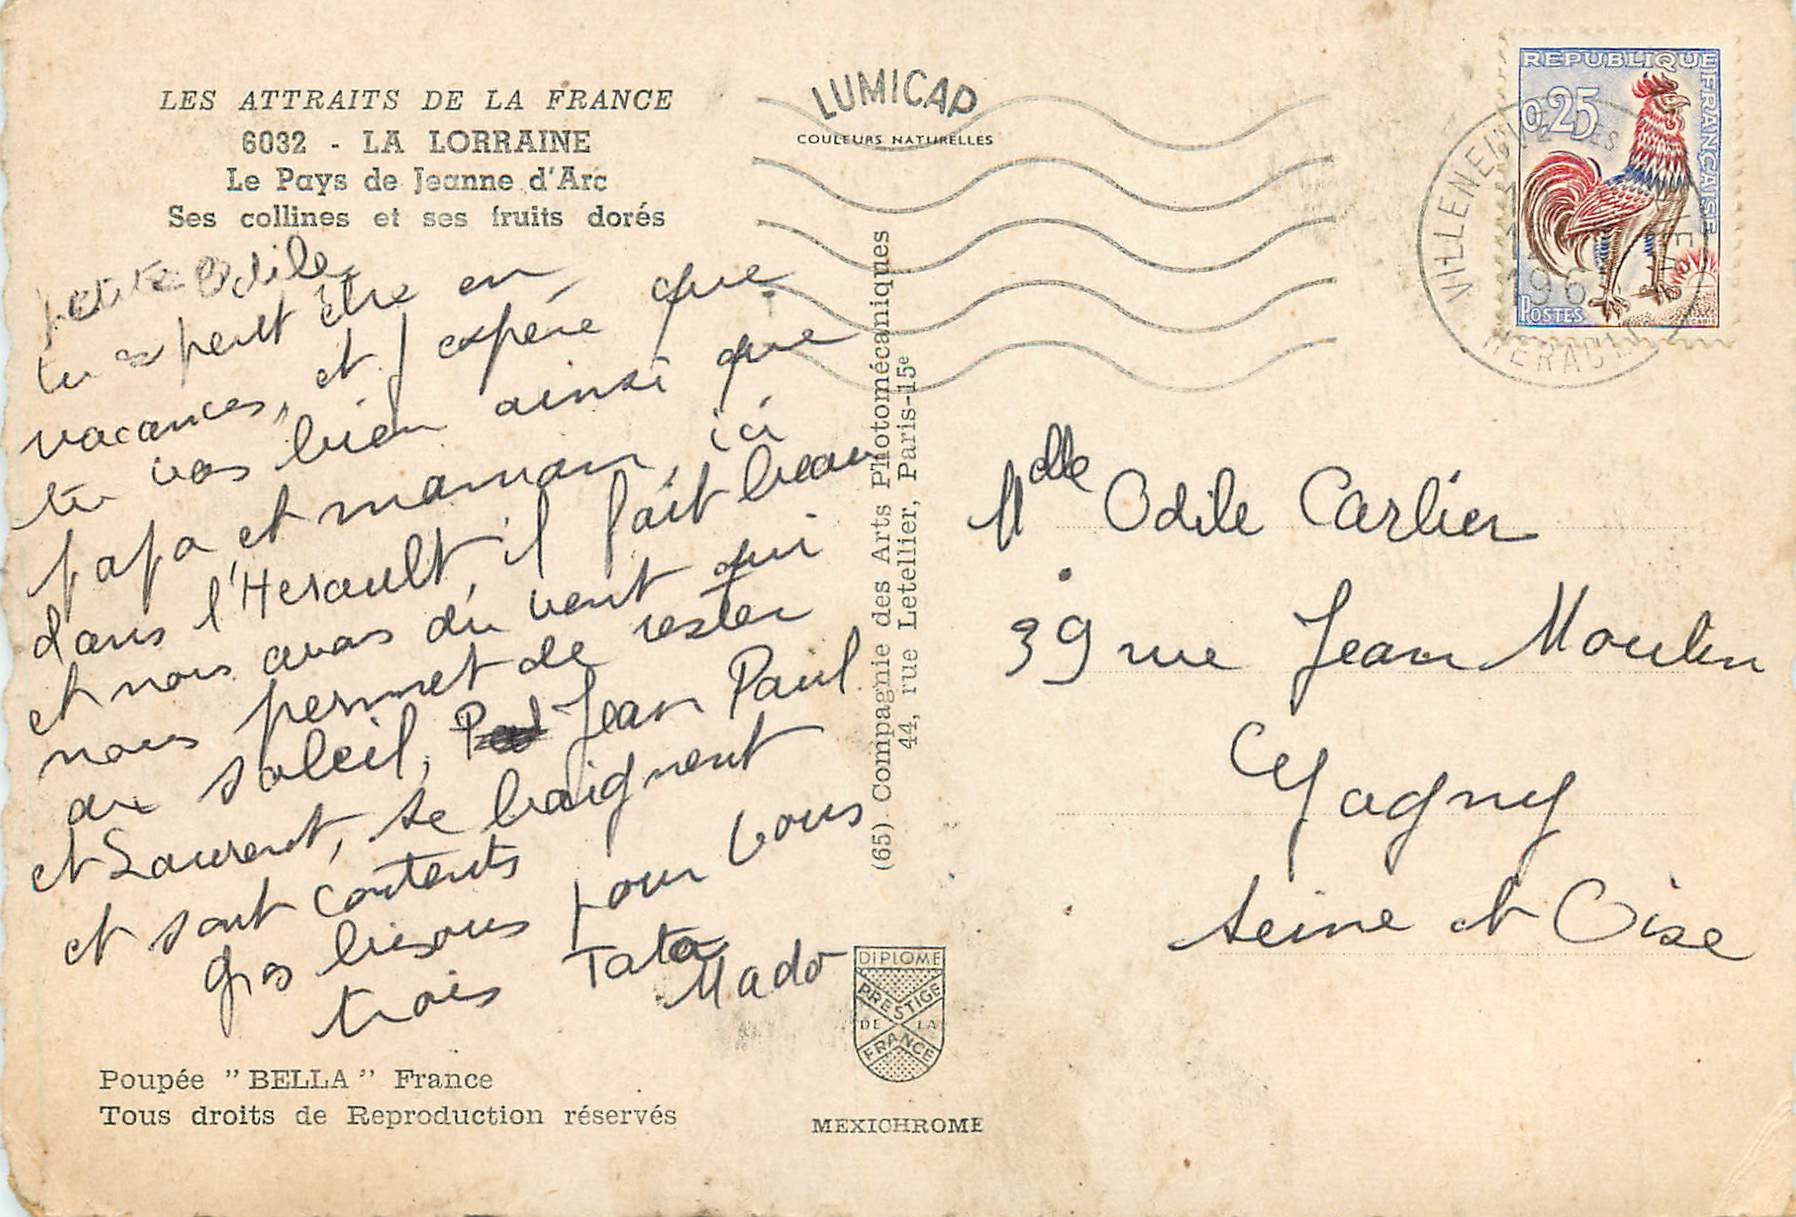 LES ATTRAITS DE LA FRANCE
6032 - LA LORRAINE
Le Pays de Jeanne d'Arc
Ses collines et ses fruits dorés
petite Odile,
tu es peut être en
vacances, et j espére que
tu vas bien ainsi que
papa et maman, ici
dans l'Herault il fait beau
et nous avons du vent qui
nous permet de rester
au soleil, Jean Paul
et Laurent, se baignent
et sont contents
gros bisous pour vous
trois Tata
Mado
Poupée "BELLA" France
Tous droits de Reproduction réservés
LUMICAP
COULEURS NATURELLES
(65) Compagnie des Arts Photomécaniques
44, rue Letellier, Paris-15e
DIPLOME
PRESTIGE
DE LA
FRANCE
MEXICHROME
REPUBLIQUE FRANÇAISE
0,25
POSTES
VILLENEUVE LES
196
HERAULT
Mdlle Odile Carlier
39 rue Jean Moulin
Gagny
Seine et Oise